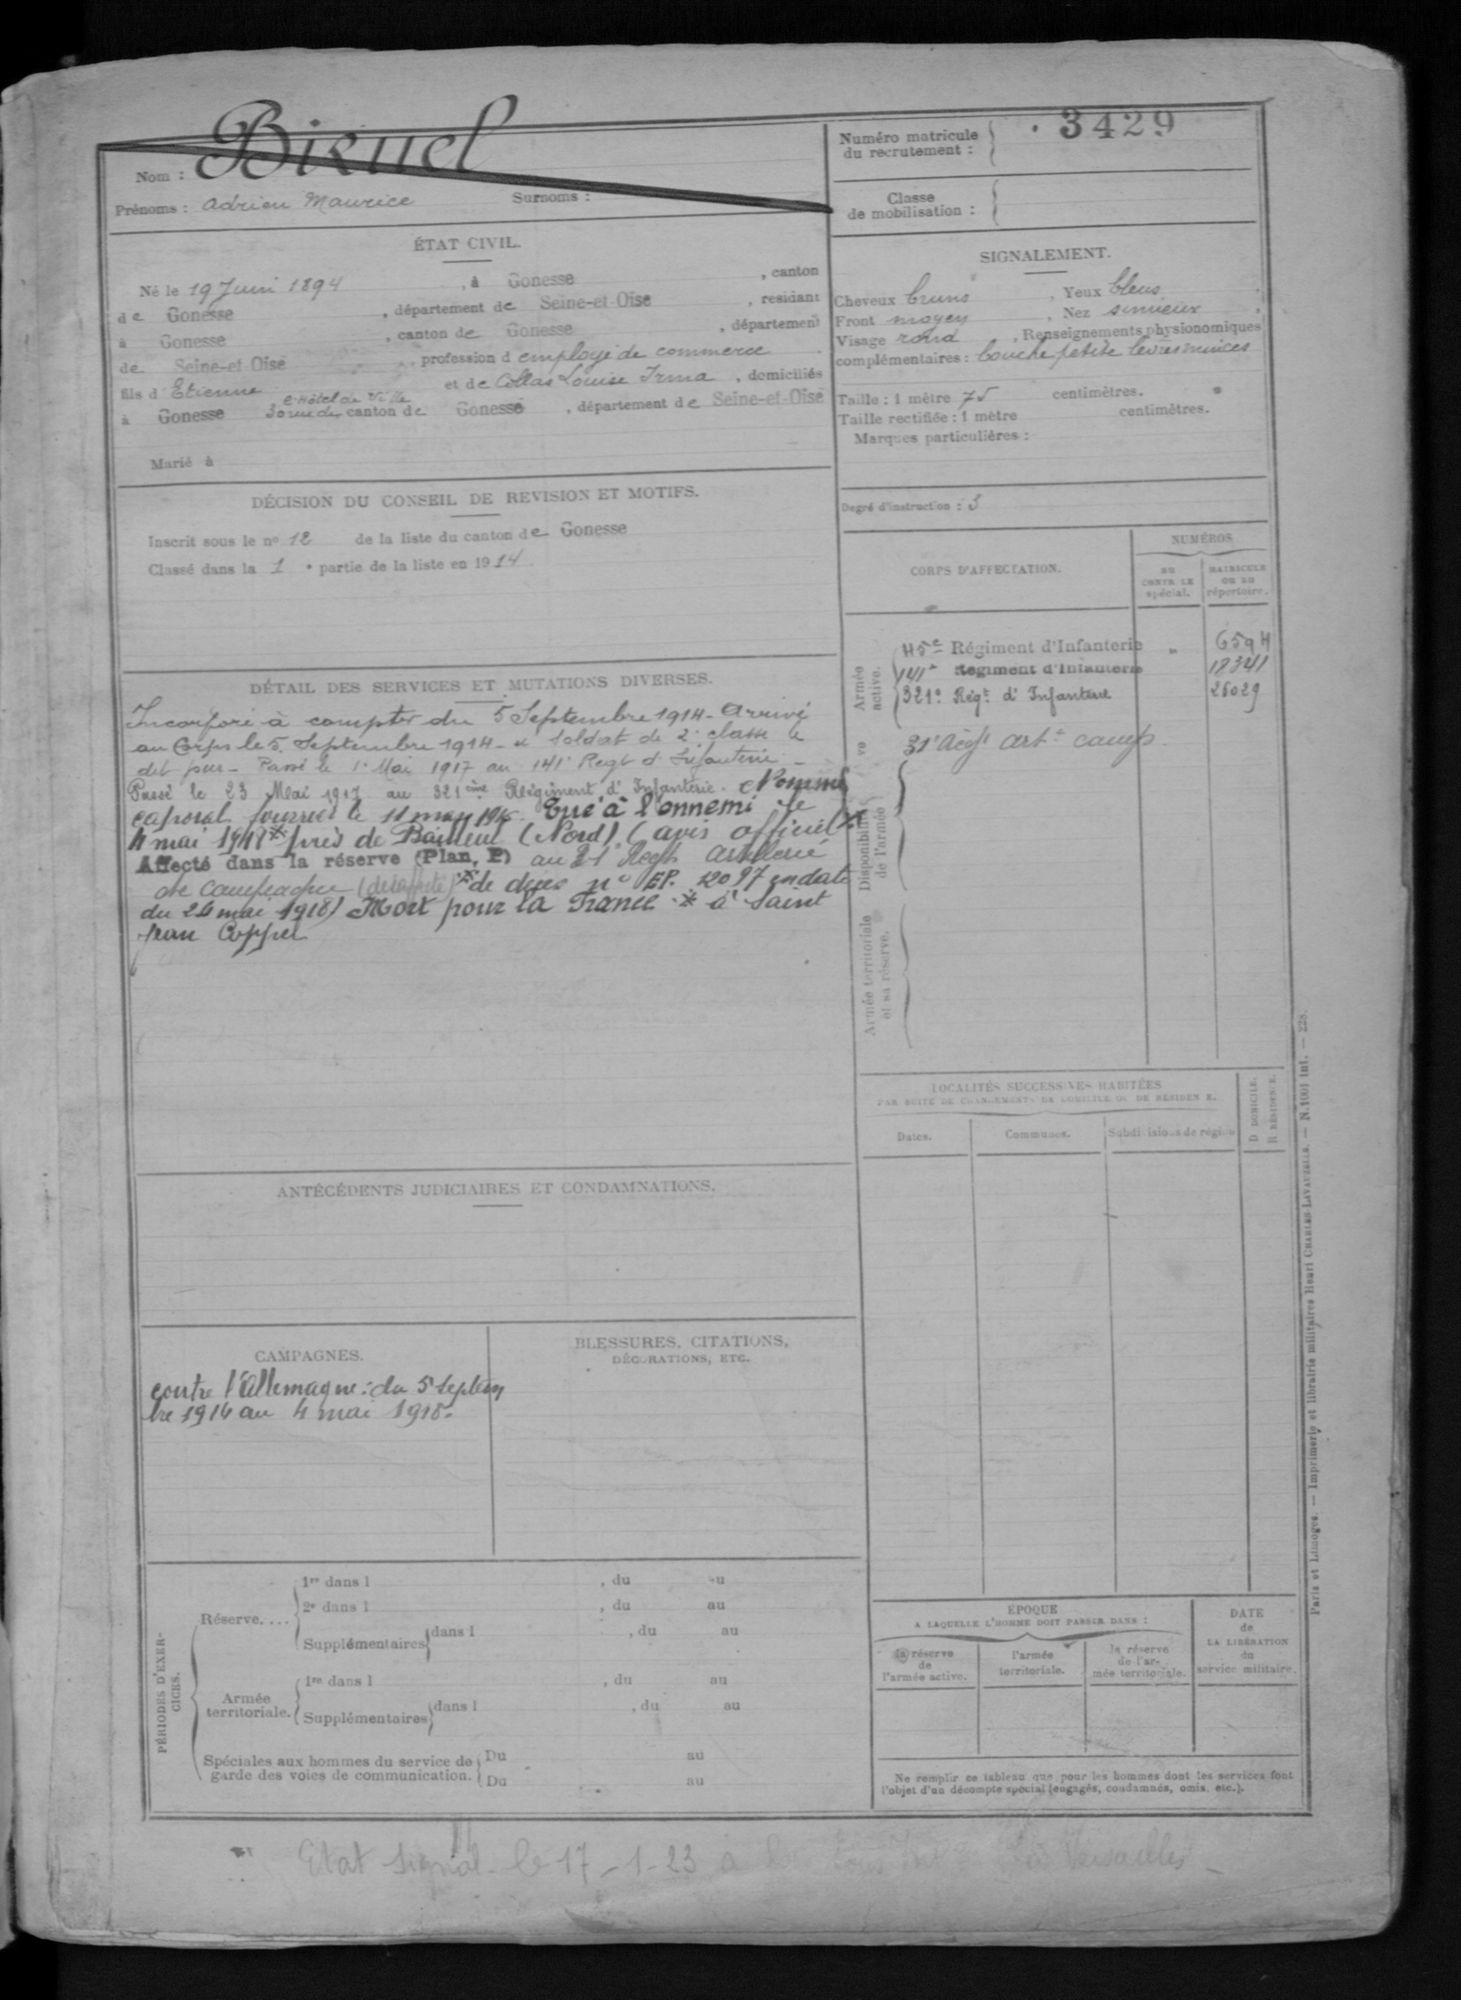 Nom : Biquel
Prénoms : Adrien Maurice Surnoms :
Numéro matricule du recrutement : 3429
Classe de mobilisation :
ÉTAT CIVIL.
Né le 19 Juin 1894, à Gonesse, canton
de Gonesse, département de Seine-et-Oise, résidant
à Gonesse, canton de Gonesse, département
de Seine-et-Oise, profession d employé de commerce
fils d'Etienne et de Collas Louise Irma, domiciliés
à Gonesse 30 rue de l'Hôtel de Ville canton de Gonesse, département de Seine-et-Oise
Marié à
SIGNALEMENT.
Cheveux bruns, Yeux bleus,
Front moyen, Nez sinueux,
Visage rond, Renseignements physionomiques
complémentaires : bouche petite lèvres minces
Taille : 1 mètre 75 centimètres.
Taille rectifiée : 1 mètre centimètres.
Marques particulières :
Degré d'instruction : 3
DÉCISION DU CONSEIL DE REVISION ET MOTIFS.
Inscrit sous le no 12 de la liste du canton de Gonesse
Classé dans la 1e partie de la liste en 1914.
CORPS D'AFFECTATION.
NUMÉROS
AU CONTRÔLE spécial.
MATRICULE OU AU répertoire.
Armée active.
45e Régiment d'Infanterie " 6594
141e Régiment d'Infanterie 18341
321e Régt d'Infanterie 26029
31e Régt Artie camp.
Disponibilité de l'armée
Armée territoriale et sa réserve.
DÉTAIL DES SERVICES ET MUTATIONS DIVERSES.
Incorporé à compter du 5 Septembre 1914 - Arrivé
au Corps le 5 Septembre 1914 - et soldat de 2e classe le
dit jour - Passé le 1er Mai 1917 au 141e Regt d'Infanterie -
Passé le 23 Mai 1917 au 321ème Régiment d'Infanterie. Nommé
caporal fourrier le 11 mars 1916. Tué à l'ennemi le
4 mai 1918 * près de Bailleul (Nord) (avis officiel *
Affecté dans la réserve (Plan, P) au 31e Regt Artillerie
de campagne * de décès no EP. 12097 en date
du 26 mai 1918) Mort pour la France * à Saint
Jean Copper
LOCALITÉS SUCCESSIVES HABITÉES
PAR SUITE DE CHANGEMENTS DE DOMICILE OU DE RÉSIDENCE.
Dates. Communes. Subdivisions de région D DOMICILE. R RÉSIDENCE.
ANTÉCÉDENTS JUDICIAIRES ET CONDAMNATIONS.
CAMPAGNES.
contre l'Allemagne : du 5 septem
bre 1914 au 4 mai 1918.
BLESSURES, CITATIONS,
DÉCORATIONS, ETC.
PÉRIODES D'EXERCICES.
Réserve....
1re dans l , du au
2e dans l , du au
Supplémentaires dans l , du au
Armée territoriale.
1re dans l , du au
Supplémentaires dans l , du au
Spéciales aux hommes du service de
garde des voies de communication.
Du au
Du au
ÉPOQUE
A LAQUELLE L'HOMME DOIT PASSER DANS :
la réserve de l'armée active.
l'armée territoriale.
la réserve de l'armée territoriale.
DATE de LA LIBÉRATION du service militaire.
Ne remplir ce tableau que pour les hommes dont les services font
l'objet d'un décompte spécial (engagés, condamnés, omis, etc.).
Paris et Limoges. — Imprimerie et librairie militaires Henri CHARLES-LAVAUZELLE. — N. 1001 int. — 228.
Etat signal. le 17-1-23 à Versailles